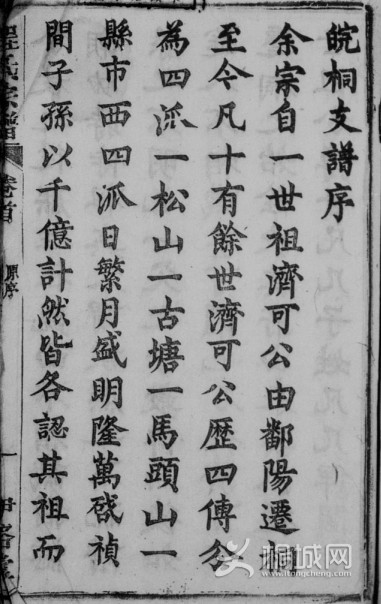 皖桐支譜序
余宗自一世祖濟可公由鄱陽遷桐
至今凡十有餘世濟可公歷四傳分
為四派一松山一古塘一馬頭山一
縣市西四派日繁月盛明隆萬啓禎
間子孫以千億計然皆各認其祖而
氏宗譜
卷首
原序
一
桐城网
www.itongcheng.com